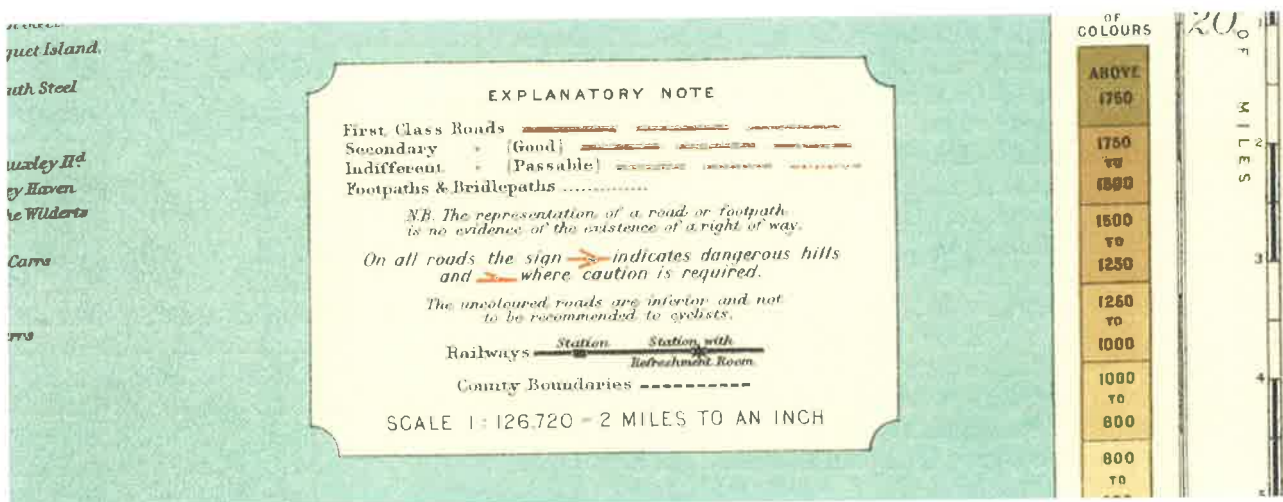 quet Island.
uth Steel
ey Haven
he Wilderts
Carrs
EXPLANATORY NOTE
First Class Roads
Secondary " (Good)
Indifferent " (Passable)
Footpaths & Bridlepaths ..............
N.B. The representation of a road or footpath
is no evidence of the existence of a right of way.
On all roads the sign indicates dangerous hills
and where caution is required.
The uncoloured roads are inferior and not
to be recommended to cyclists.
Station Station with
Railways
Refreshment Room
County Boundaries
SCALE 1:126,720 = 2 MILES TO AN INCH
OF
COLOURS
ABOVE
1750
1750
TO
1500
1500
TO
1250
1250
TO
1000
1000
TO
800
800
TO
20
OF MILES
1
2
3
4
5